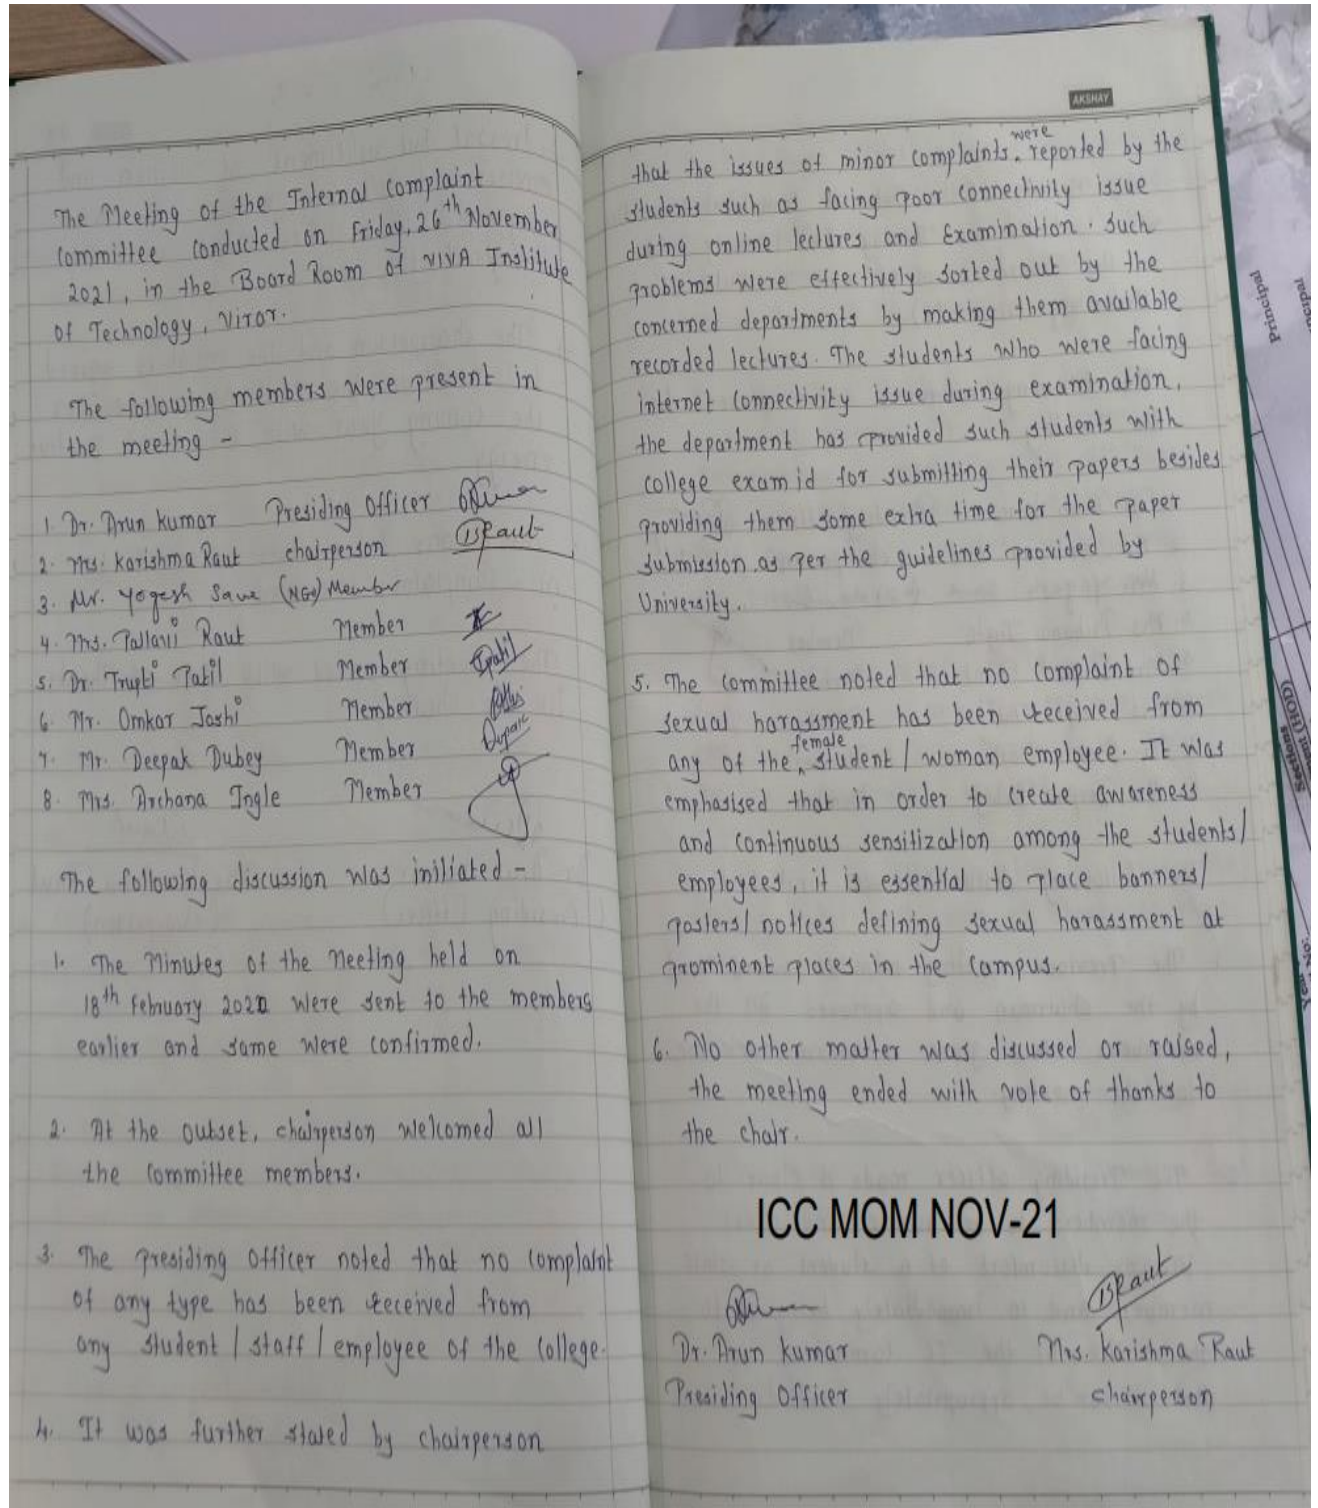 The Meeting of the Internal Complaint
Committee conducted on Friday, 26th November
2021, in the Board Room of VIVA Institute
of Technology, Virar.
The following members were present in
the meeting -
1. Dr. Arun Kumar Presiding Officer
2. Mrs. Karishma Raut chairperson BRaut
3. Mr. Yogesh Save (NGO) Member
4. Mrs. Pallavi Raut Member
5. Dr. Trupti Patil Member TPatil
6. Mr. Omkar Joshi Member
7. Mr. Deepak Dubey Member
8. Mrs. Archana Ingle Member
The following discussion was initiated -
1. The Minutes of the Meeting held on
18th February 2021 were sent to the members
earlier and same were confirmed.
2. At the outset, chairperson welcomed all
the Committee members.
3. The Presiding Officer noted that no complaint
of any type has been received from
any student / staff / employee of the College.
4. It was further stated by chairperson
AKSHAY
that the issues of minor complaints were reported by the
students such as facing poor connectivity issue
during online lectures and Examination. Such
problems were effectively sorted out by the
concerned departments by making them available
recorded lectures. The students who were facing
internet connectivity issue during examination,
the department has provided such students with
college exam id for submitting their papers besides
providing them some extra time for the paper
submission as per the guidelines provided by
University.
5. The Committee noted that no complaint of
sexual harassment has been received from
any of the female student / woman employee. It was
emphasised that in order to create awareness
and continuous sensitization among the students/
employees, it is essential to place banners/
posters/ notices defining sexual harassment at
prominent places in the Campus.
6. No other matter was discussed or raised,
the meeting ended with vote of thanks to
the chair.
ICC MOM NOV-21
BRaut
Dr. Arun Kumar Mrs. Karishma Raut
Presiding Officer chairperson
Principal
Sections